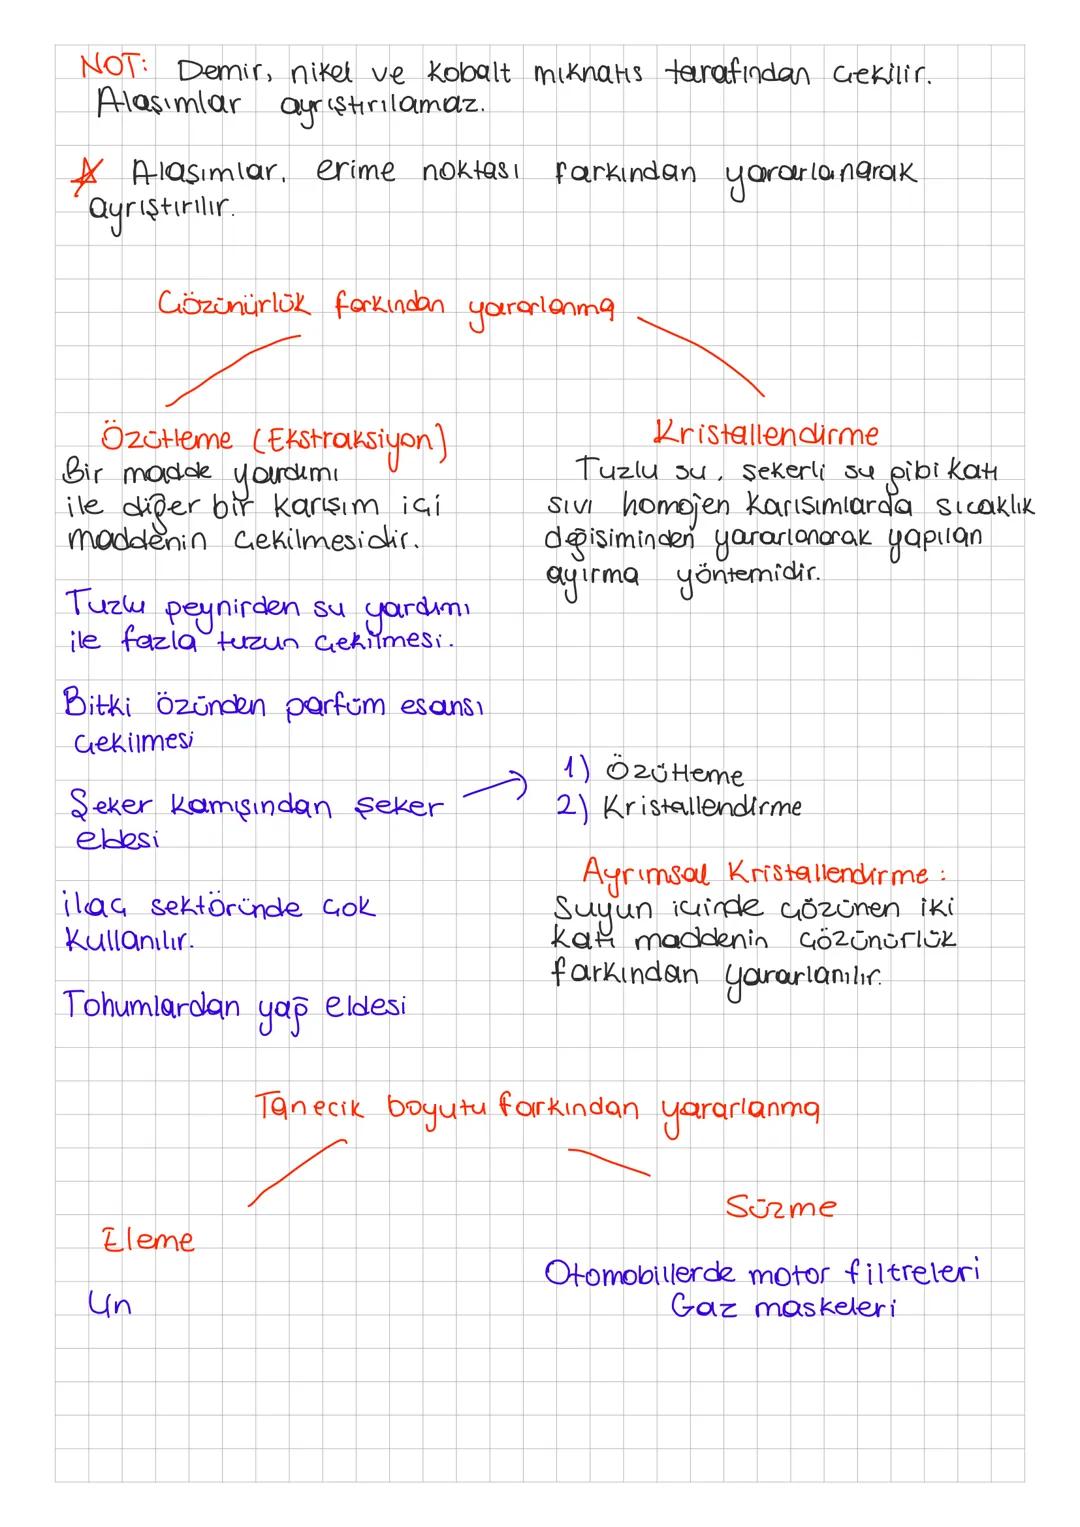 NOT: Demir, nikel ve kobalt mıknatıs tarafından çekilir.
Alaşımlar ayrıştırılamaz.
Alaşımlar, erime noktası farkından yararlanarak
ayrıştırılır.
Çözünürlük farkından yararlanma
Özütleme (Ekstraksiyon)
Bir madde yardımı
ile diğer bir karışım içi
maddenin çekilmesidir.
Tuzlu peynirden su yardımı
ile fazla tuzun çekilmesi.
Bitki özünden parfüm esansı
çekilmesi
Şeker kamışından şeker
eldesi
ilaç sektöründe çok
kullanılır.
Tohumlardan yağ eldesi
Kristallendirme
Tuzlu su, şekerli su gibi katı
sıvı homojen karışımlarda sıcaklık
değişiminden yararlanarak yapılan
ayırma yöntemidir.
1) Özütleme
2) Kristallendirme
Ayrımsal Kristallendirme:
Suyun içinde çözünen iki
katı maddenin çözünürlük
farkından yararlanılır.
Tanecik boyutu farkından yararlanma
Eleme
Un
Süzme
Otomobillerde motor filtreleri
Gaz maskeleri